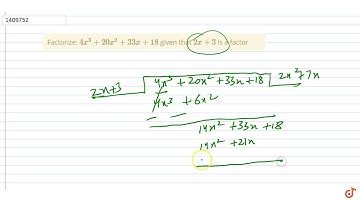 1409752
Factorize: 4x³ + 20x² + 33x + 18 given that 2x + 3 is a factor
2x+3 4x³ + 20x² + 33x + 18 2x²+7x
4x³ + 6x²
— —
14x² + 33x + 18
14x² + 21x
-
doubtnut